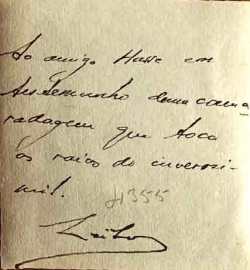 Ao amigo Hasse em
testemunho duma cama-
radagem que toca
as raias do inverosi-
mil.
4355